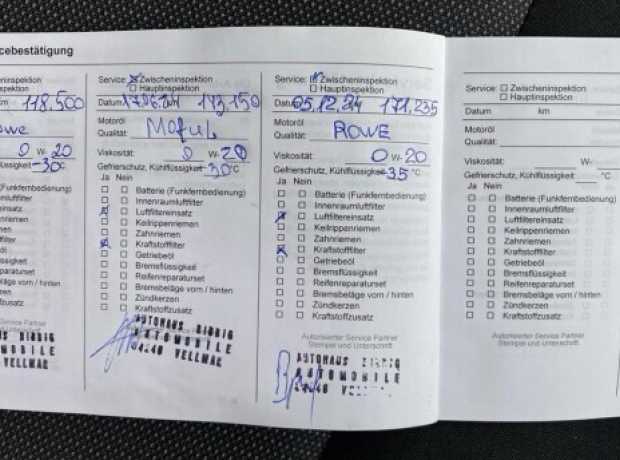 cebestätigung
cheninspektion
tinspektion
km 118,500
Rowe
0 W-20
lüssigkeit -30°C
(Funkfernbedienung)
mluftfilter
ereinsatz
enriemen
emen
offfilter
eöl
flüssigkeit
reparaturset
beläge vorn / hinten
erzen
offzusatz
Service Partner
Unterschrift
VELLMAR
Service: Zwischeninspektion
Hauptinspektion
Datum 173,150
Motoröl
Qualität: Motul
Viskosität: 0 W-20
Gefrierschutz, Kühlflüssigkeit -30°C
Ja Nein
Batterie (Funkfernbedienung)
Innenraumluftfilter
Luftfiltereinsatz
Keilrippenriemen
Zahnriemen
Kraftstofffilter
Getriebeöl
Bremsflüssigkeit
Reifenreparaturset
Bremsbeläge vorn / hinten
Zündkerzen
Kraftstoffzusatz
AUTOHAUS
AUTOMOBILE
VELLMAR
Service: Zwischeninspektion
Hauptinspektion
Datum 05.12.24 171,235
Motoröl
Qualität: ROWE
Viskosität: 0 W-20
Gefrierschutz, Kühlflüssigkeit -35°C
Ja Nein
Batterie (Funkfernbedienung)
Innenraumluftfilter
Luftfiltereinsatz
Keilrippenriemen
Zahnriemen
Kraftstofffilter
Getriebeöl
Bremsflüssigkeit
Reifenreparaturset
Bremsbeläge vorn / hinten
Zündkerzen
Kraftstoffzusatz
Autorisierter Service Partner
Stempel und Unterschrift
AUTOHAUS
AUTOMOBILE
Service: Zwischeninspektion
Hauptinspektion
Datum km
Motoröl
Qualität:
Viskosität: W-
Gefrierschutz, Kühlflüssigkeit °C
Ja Nein
Batterie (Funkfernbedienung)
Innenraumluftfilter
Luftfiltereinsatz
Keilrippenriemen
Zahnriemen
Kraftstofffilter
Getriebeöl
Bremsflüssigkeit
Reifenreparaturset
Bremsbeläge vorn / hinten
Zündkerzen
Kraftstoffzusatz
Autorisierter Service Partner
Stempel und Unterschrift